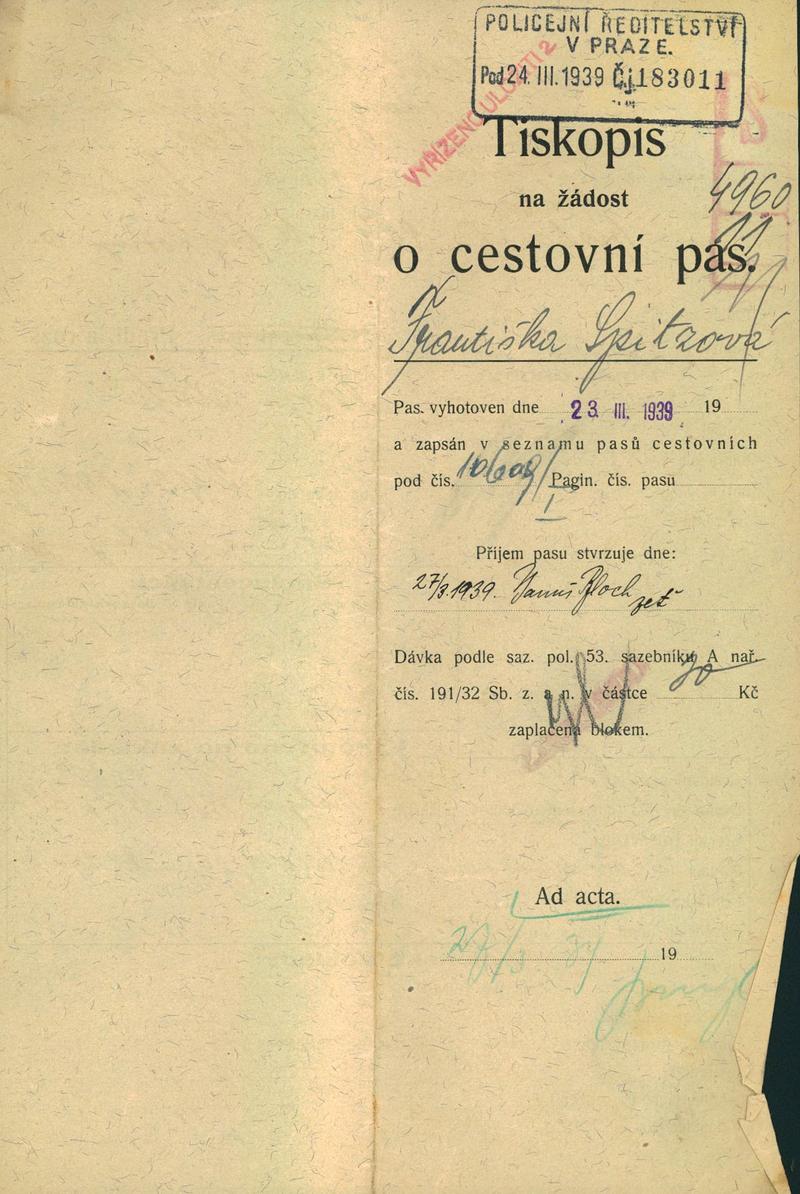 POLICEJNÍ ŘEDITELSTVÍ
V PRAZE.
Pod 24. III. 1939 Čj. 183011
Tiskopis
na žádost
4960
11
o cestovní pas.
Františka Spitzová
Pas. vyhotoven dne 23. III. 1939 19
a zapsán v seznamu pasů cestovních
pod čís. 10608/I Pagin. čís. pasu
Příjem pasu stvrzuje dne:
27/3.1939. Hanuš Bloch zeť
Dávka podle saz. pol. 53. sazebníku A nař.
čís. 191/32 Sb. z. a n. v částce 30 Kč
zaplacena blokem.
Ad acta.
27/3 39 19